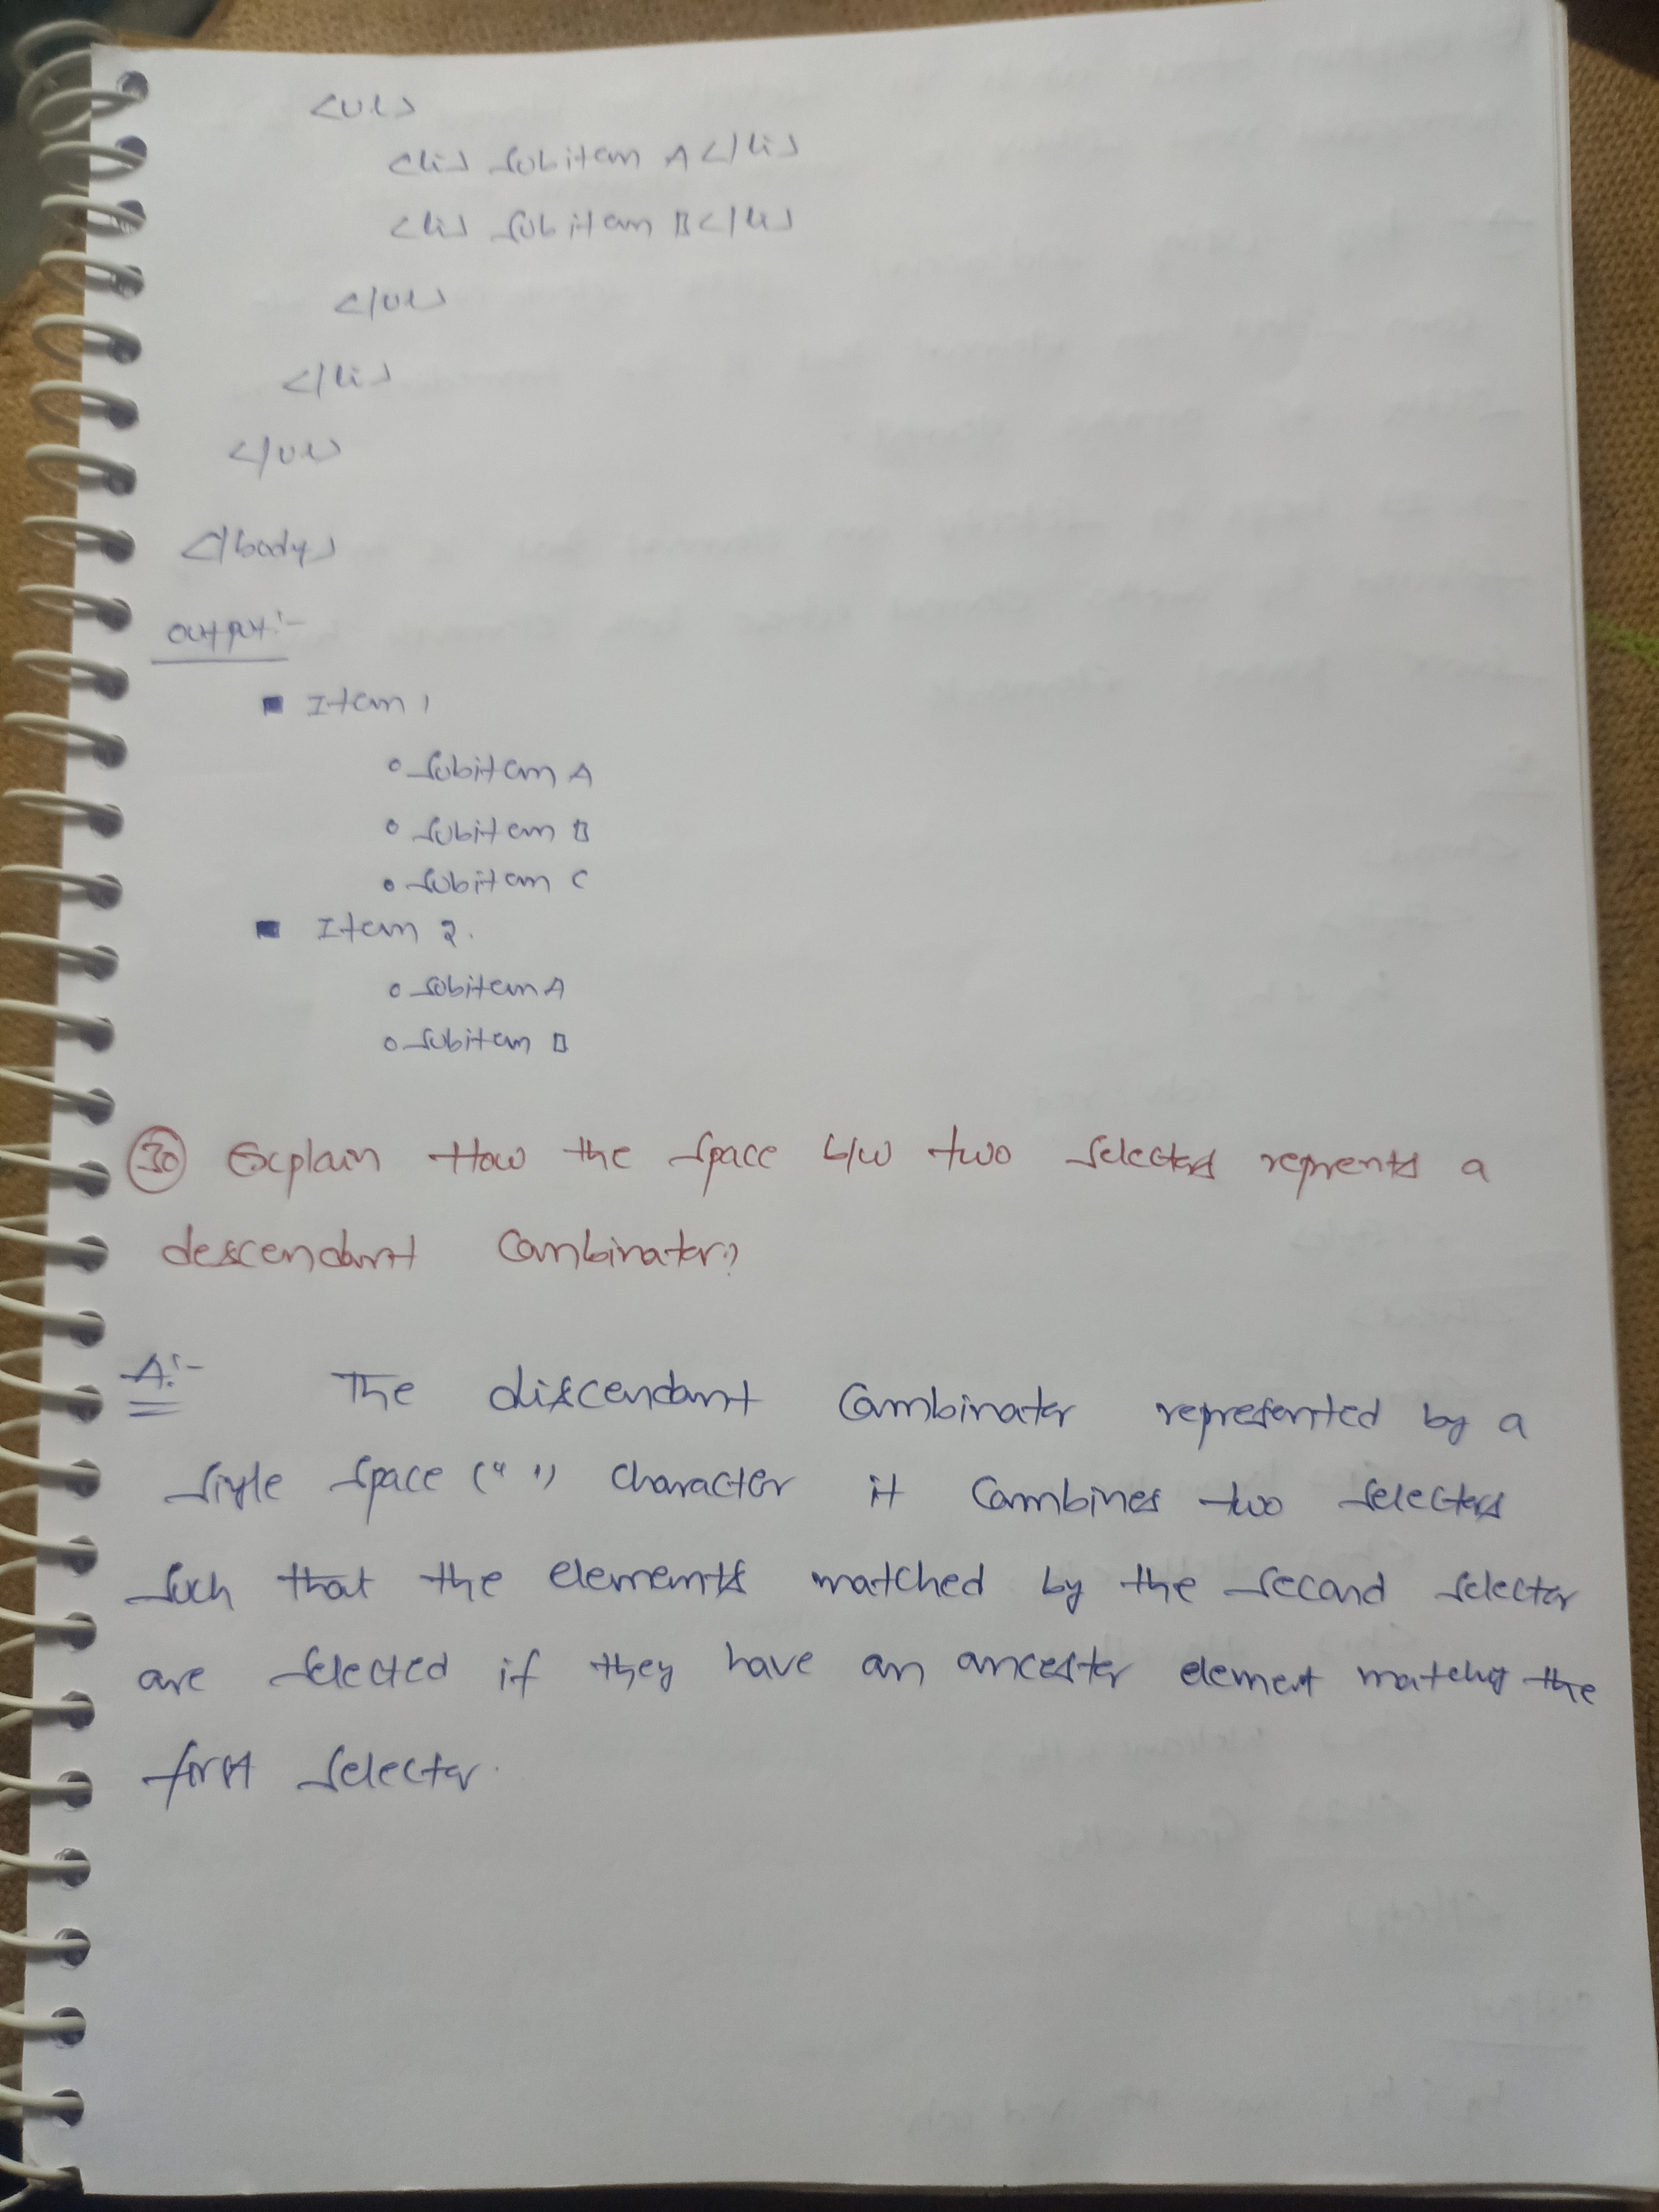 <ul>
<li> Subitem A </li>
<li> Subitem B </li>
</ul>
</li>
</ul>
</body>
output:-
▪ Item 1
○ Subitem A
○ Subitem B
○ Subitem C
▪ Item 2.
○ Subitem A
○ Subitem B
30 Explain How the Space b/w two Selectors reprents a
descendant Combinator?
A:- The discendant Combinator represented by a
Single Space (" ") character it Combines two Selectors
Such that the elements matched by the Second Selector
are Selected if they have an ancestor element matching the
first Selector.